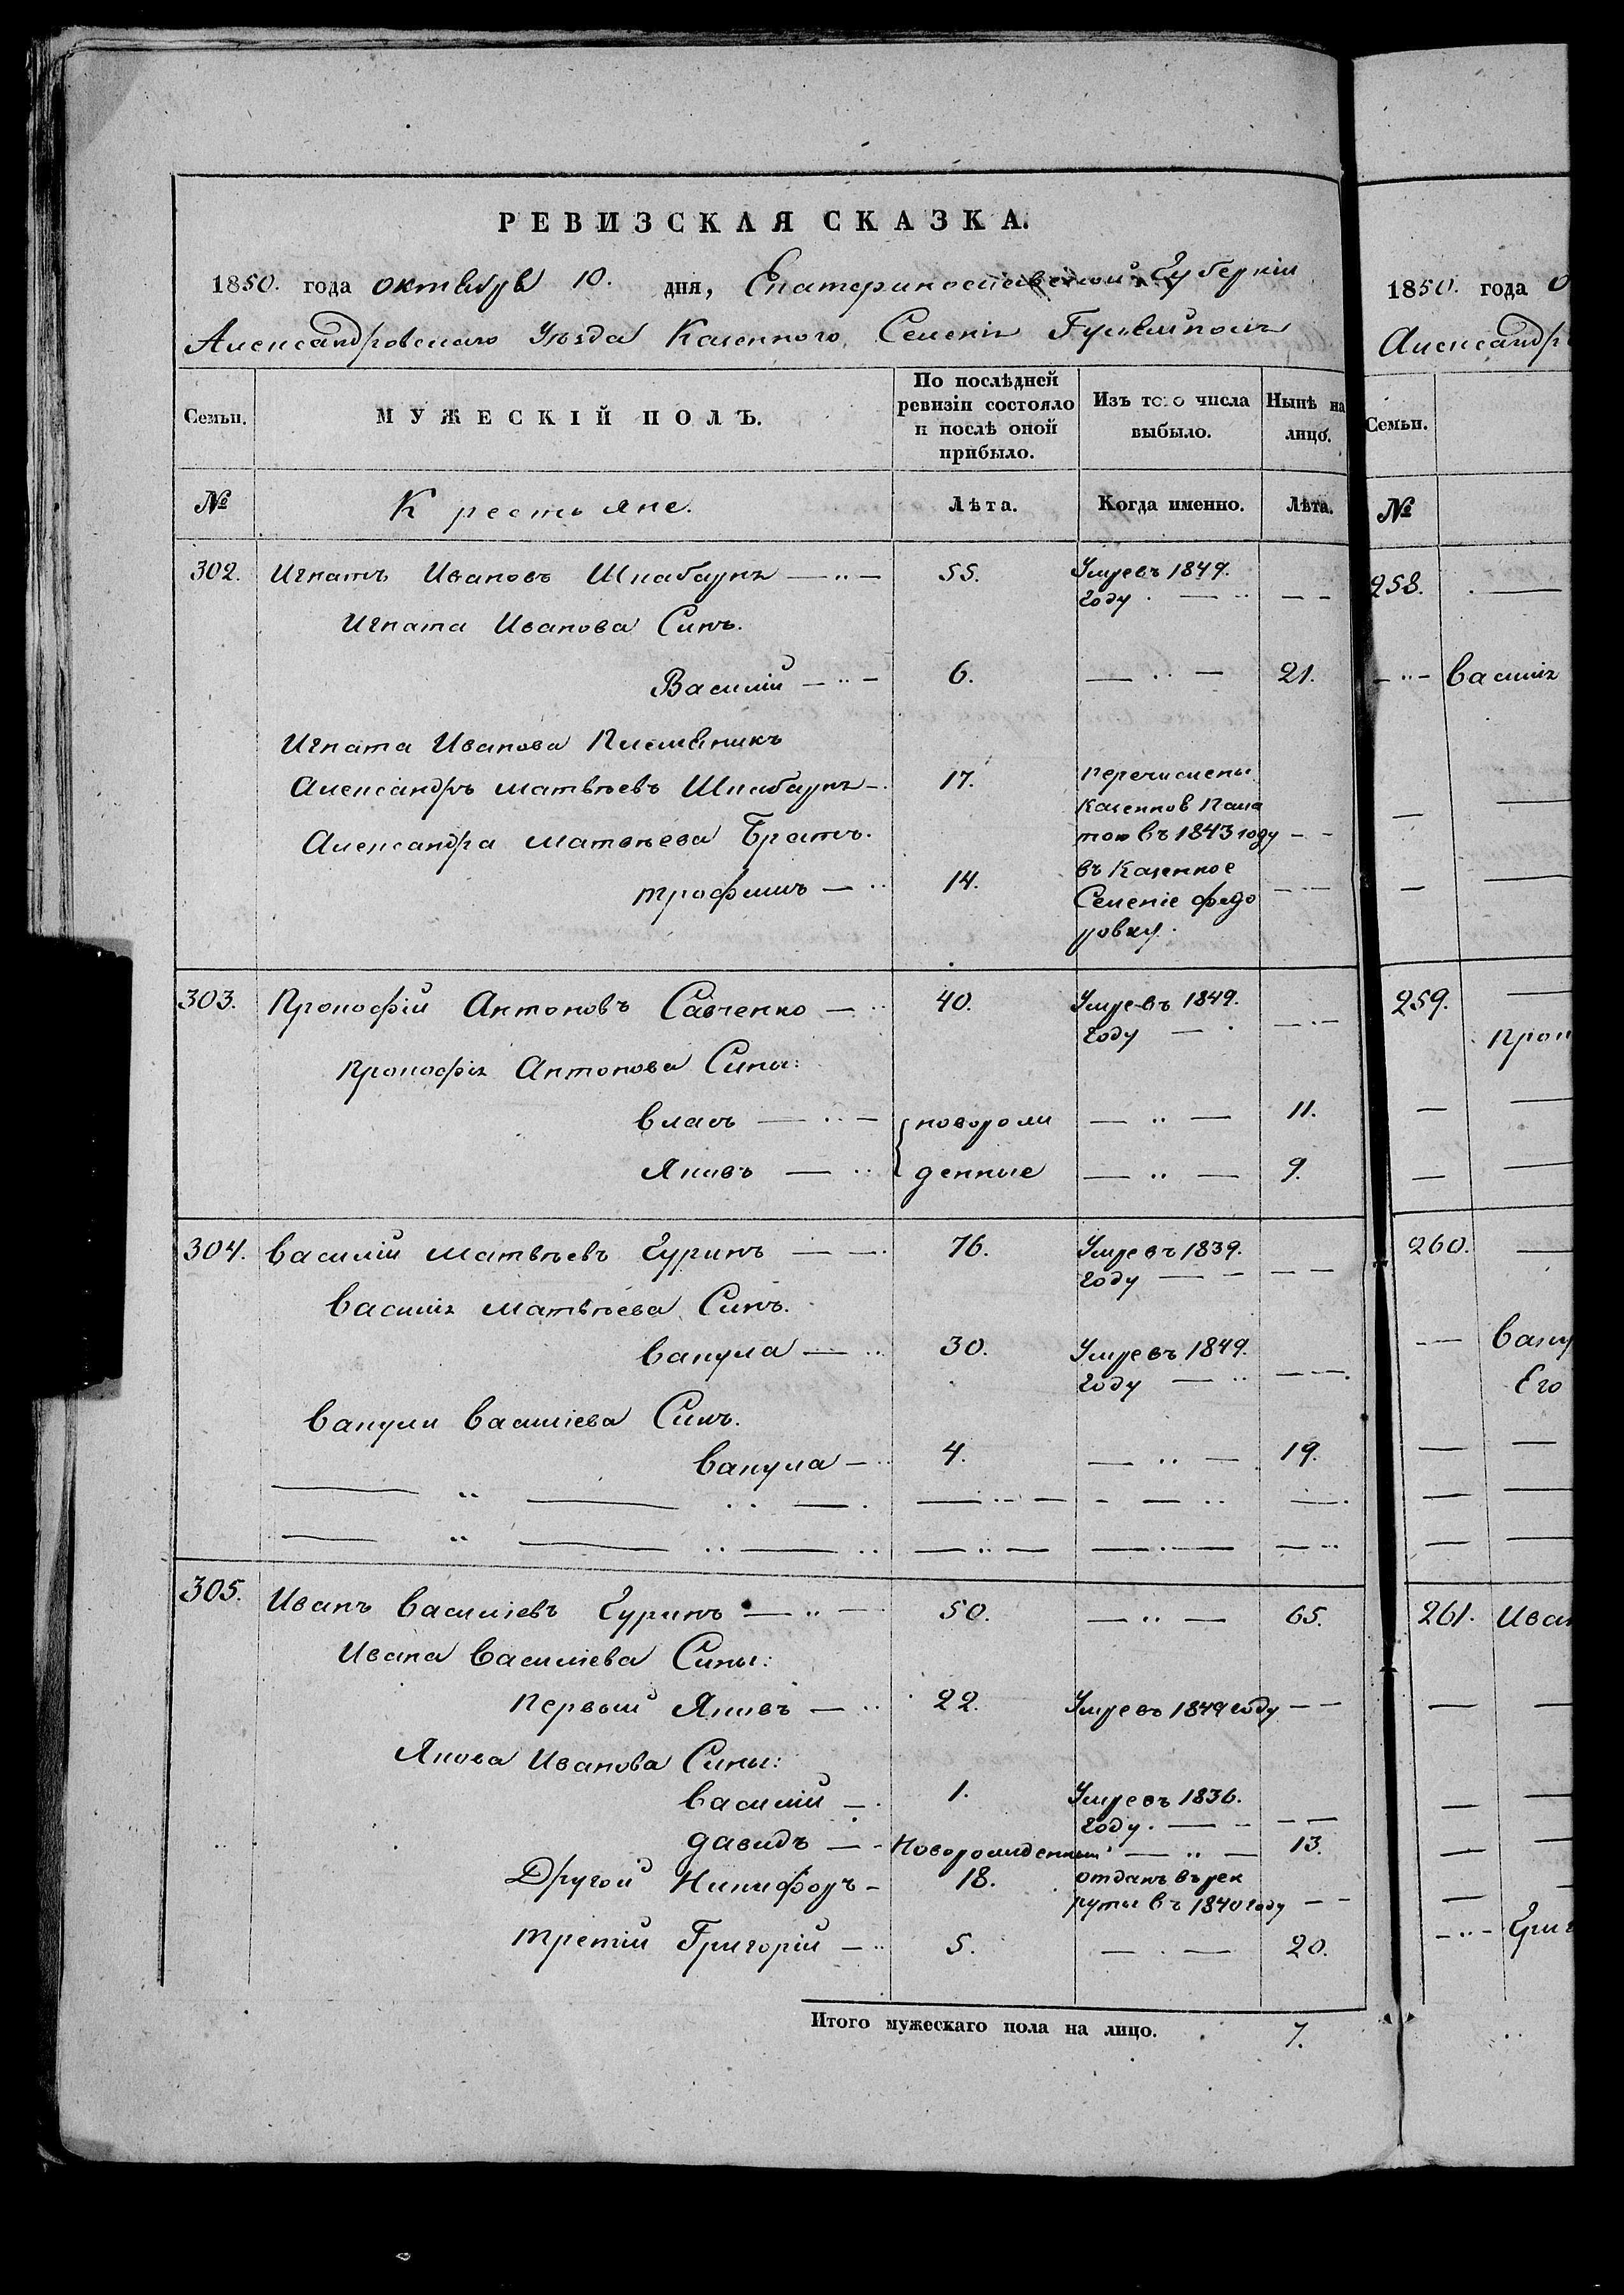 РЕВИЗСКАЯ СКАЗКА.
1850. года октября 10. дня, Екатеринославской Губерніи
Александровскаго Уѣзда Казенного Селенія Гуляйполя
Семьи. МУЖЕСКІЙ ПОЛЪ. По послѣдней ревизіи состояло и послѣ оной прибыло. Изъ того числа выбыло. Нынѣ на лицо.
№ Крестьяне. Лѣта. Когда именно. Лѣта.
302. Игнатъ Ивановъ Шкабаря 55. Умре въ 1849.
году
Игната Иванова Синъ.
Василій 6. 21.
Игната Иванова Племяникъ
Александръ Матвѣевъ Шкабаря 17. перечислены
Казенной Пала
Александра Матвѣева Братъ. тою въ 1843 году
въ Казенное
трофимъ 14. Селеніе федо
ровку.
303. Прокофій Антоновъ Савченко 40. Умре въ 1849.
году
Прокофія Антонова Сины:
Власъ новорож 11.
Яковъ денные 9.
304. Василій Матвѣевъ Гуринъ 76. Умре въ 1839.
году
Василія Матвѣева Синъ.
Вакула 30. Умре въ 1849.
году
Вакули Василіева Синъ.
Вакула 4. 19.
305. Иванъ Василіевъ Гуринъ 50. 65.
Ивана Василіева Сины:
Первый Яковъ 22. Умре въ 1849 году
Якова Иванова Сины:
Василій 1. Умре въ 1836.
году.
давидъ Новорожденный 13.
Другой Никифоръ 18. отданъ въ рек
руты въ 1840 году
третій Григорій 5. 20.
Итого мужескаго пола на лицо. 7.
1850. года О
Александр
Семьи.
№
258.
Василія
259.
Прок
260.
Ваку
Его
261. Иван
Григ